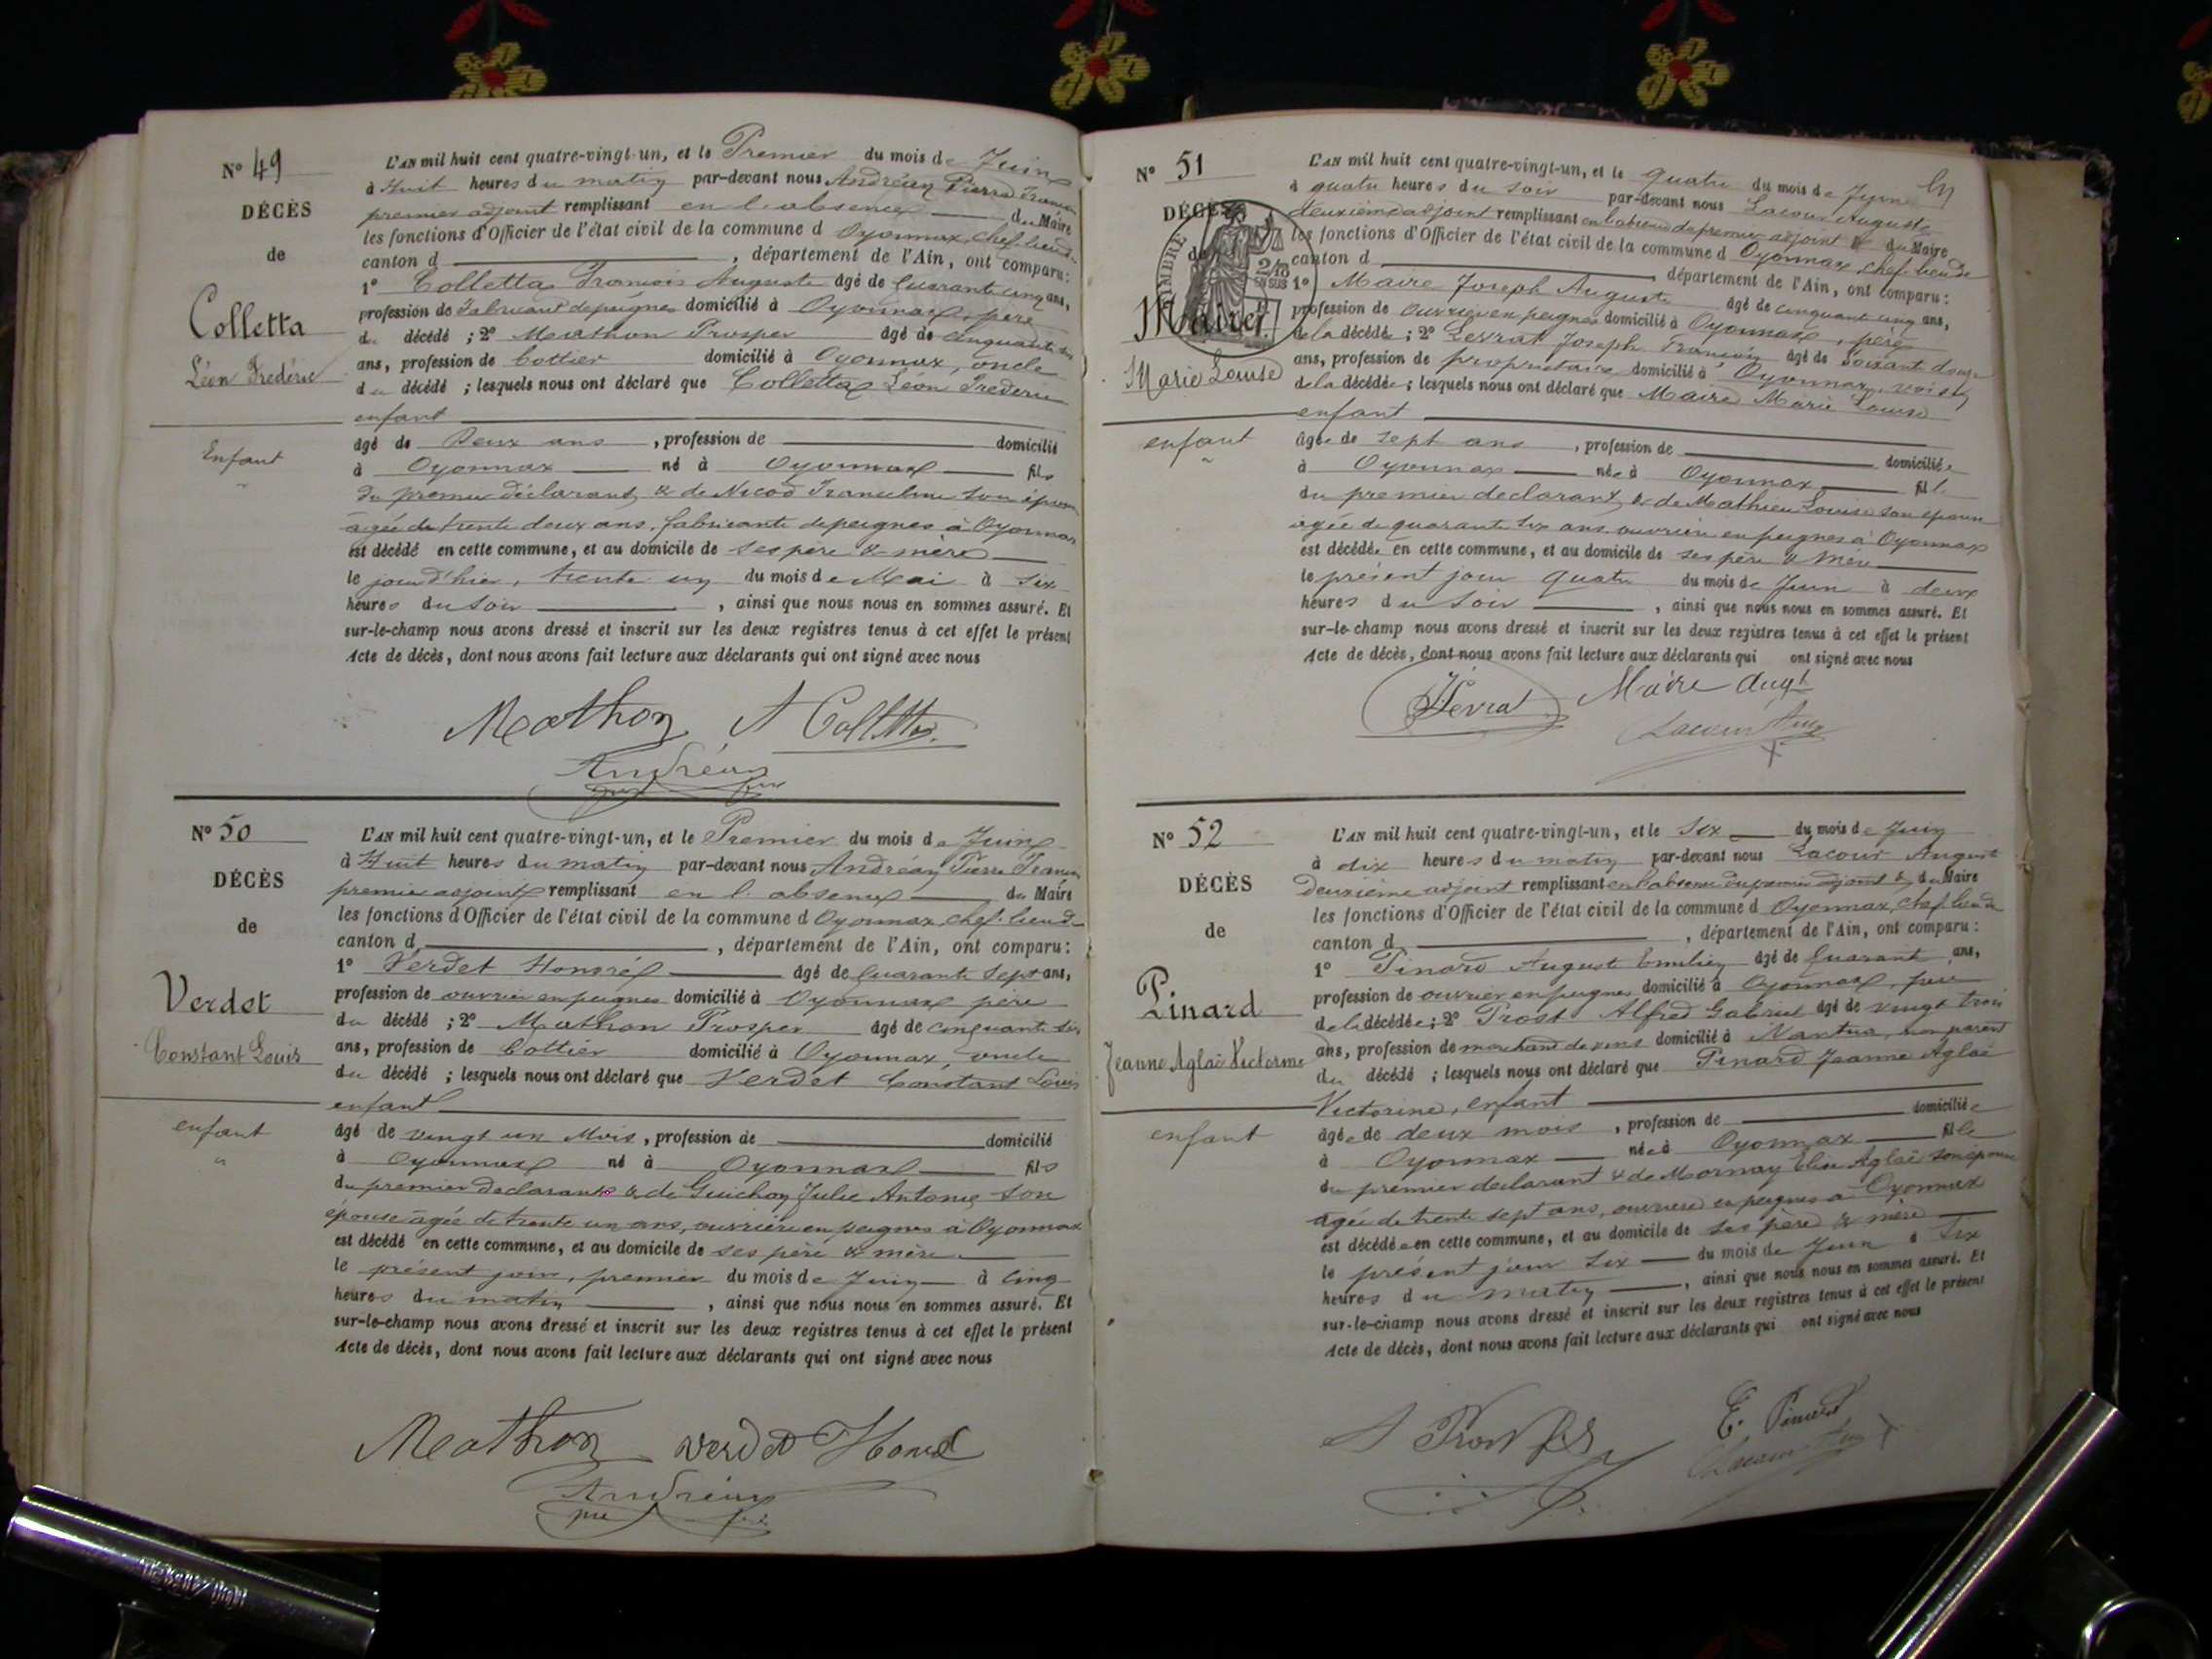 N° 49
DÉCÈS
de
Colletta
Léon Frédéric
Enfant
L'AN mil huit cent quatre-vingt-un, et le Premier du mois de Juin
à Huit heures du matin par-devant nous Andréan Pierre Franc
premier adjoint remplissant en l'absence du Maire
les fonctions d'Officier de l'état civil de la commune d Oyonnax, chef-lieu de
canton d , département de l'Ain, ont comparu:
1° Colletta François Auguste âgé de Quarante cinq ans,
profession de Fabricant de peignes domicilié à Oyonnax, père
du décédé ; 2° Mathon Prosper âgé de cinquante six
ans, profession de Cottier domicilié à Oyonnax, oncle
du décédé ; lesquels nous ont déclaré que Colletta Léon Frédéric
enfant
âgé de Deux ans , profession de domicilié
à Oyonnax né à Oyonnax fils
du premier déclarant, & de Nicod Franceline son épouse
âgée de trente deux ans, fabricante de peignes à Oyonnax
est décédé en cette commune, et au domicile de ses père & mère
le jour d'hier, trente un du mois de Mai à six
heures du soir , ainsi que nous nous en sommes assuré. Et
sur-le-champ nous avons dressé et inscrit sur les deux registres tenus à cet effet le présent
Acte de décès, dont nous avons fait lecture aux déclarants qui ont signé avec nous
Mathon A Colletta
Andréan
N° 50
DÉCÈS
de
Verdet
Constant Louis
enfant
L'AN mil huit cent quatre-vingt-un, et le Premier du mois de Juin
à Huit heures du matin par-devant nous Andréan Pierre Franc
premier adjoint remplissant en l'absence du Maire
les fonctions d'Officier de l'état civil de la commune d Oyonnax, chef-lieu de
canton d , département de l'Ain, ont comparu:
1° Verdet Honoré âgé de Quarante sept ans,
profession de ouvrier en peignes domicilié à Oyonnax père
du décédé ; 2° Mathon Prosper âgé de cinquante six
ans, profession de Cottier domicilié à Oyonnax, oncle
du décédé ; lesquels nous ont déclaré que Verdet Constant Louis
enfant
âgé de vingt un Mois , profession de domicilié
à Oyonnax né à Oyonnax fils
du premier déclarant & de Guichon Julie Antonie son
épouse âgée de trente un ans, ouvrière en peignes à Oyonnax
est décédé en cette commune, et au domicile de ses père & mère
le présent jour, premier du mois de Juin à cinq
heures du matin , ainsi que nous nous en sommes assuré. Et
sur-le-champ nous avons dressé et inscrit sur les deux registres tenus à cet effet le présent
Acte de décès, dont nous avons fait lecture aux déclarants qui ont signé avec nous
Mathon verdet Honoré
Andréan
N° 51
DÉCÈS
de
TIMBRE
2/10 EN SUS
Maire
Marie Louise
enfant
L'AN mil huit cent quatre-vingt-un, et le quatre du mois de Juin
à quatre heures du soir par-devant nous Lacour Auguste
deuxième adjoint remplissant en l'absence du premier adjoint & du Maire
les fonctions d'Officier de l'état civil de la commune d Oyonnax, chef-lieu de
canton d , département de l'Ain, ont comparu:
1° Maire Joseph Auguste âgé de cinquante cinq ans,
profession de ouvrier en peignes domicilié à Oyonnax, père
de la décédée ; 2° Levrat Joseph François âgé de soixante douze
ans, profession de propriétaire domicilié à Oyonnax, voisin
de la décédée ; lesquels nous ont déclaré que Maire Marie Louise
enfant
âgée de sept ans , profession de domiciliée
à Oyonnax née à Oyonnax fille
du premier déclarant, & de Mathieu Louise son épouse
âgée de quarante six ans ouvrière en peignes à Oyonnax
est décédée en cette commune, et au domicile de ses père & Mère
le présent jour quatre du mois de Juin à deux
heures du soir , ainsi que nous nous en sommes assuré. Et
sur-le-champ nous avons dressé et inscrit sur les deux registres tenus à cet effet le présent
Acte de décès, dont nous avons fait lecture aux déclarants qui ont signé avec nous
Levrat Maire Augt
Lacour Aug
N° 52
DÉCÈS
de
Pinard
Jeanne Aglaé Victorine
enfant
L'AN mil huit cent quatre-vingt-un, et le Six du mois de Juin
à dix heures du matin par-devant nous Lacour August
deuxième adjoint remplissant en l'absence du premier adjoint & du Maire
les fonctions d'Officier de l'état civil de la commune d Oyonnax, chef-lieu de
canton d , département de l'Ain, ont comparu:
1° Pinard Auguste Emilien âgé de Quarante ans,
profession de ouvrier en peignes domicilié à Oyonnax, père
de la décédée ; 2° Prost Alfred Gabriel âgé de vingt trois
ans, profession de marchand de vins domicilié à Nantua, non parent
du décédé ; lesquels nous ont déclaré que Pinard Jeanne Aglaé
Victorine, enfant
âgée de deux mois , profession de domiciliée
à Oyonnax née à Oyonnax fille
du premier déclarant & de Mornay Elise Aglaé son épouse
âgée de trente sept ans, ouvrière en peignes à Oyonnax
est décédée en cette commune, et au domicile de ses père & mère
le présent jour six du mois de Juin à six
heures du matin , ainsi que nous nous en sommes assuré. Et
sur-le-champ nous avons dressé et inscrit sur les deux registres tenus à cet effet le présent
Acte de décès, dont nous avons fait lecture aux déclarants qui ont signé avec nous
A Prost E. Pinard
Lacour Aug